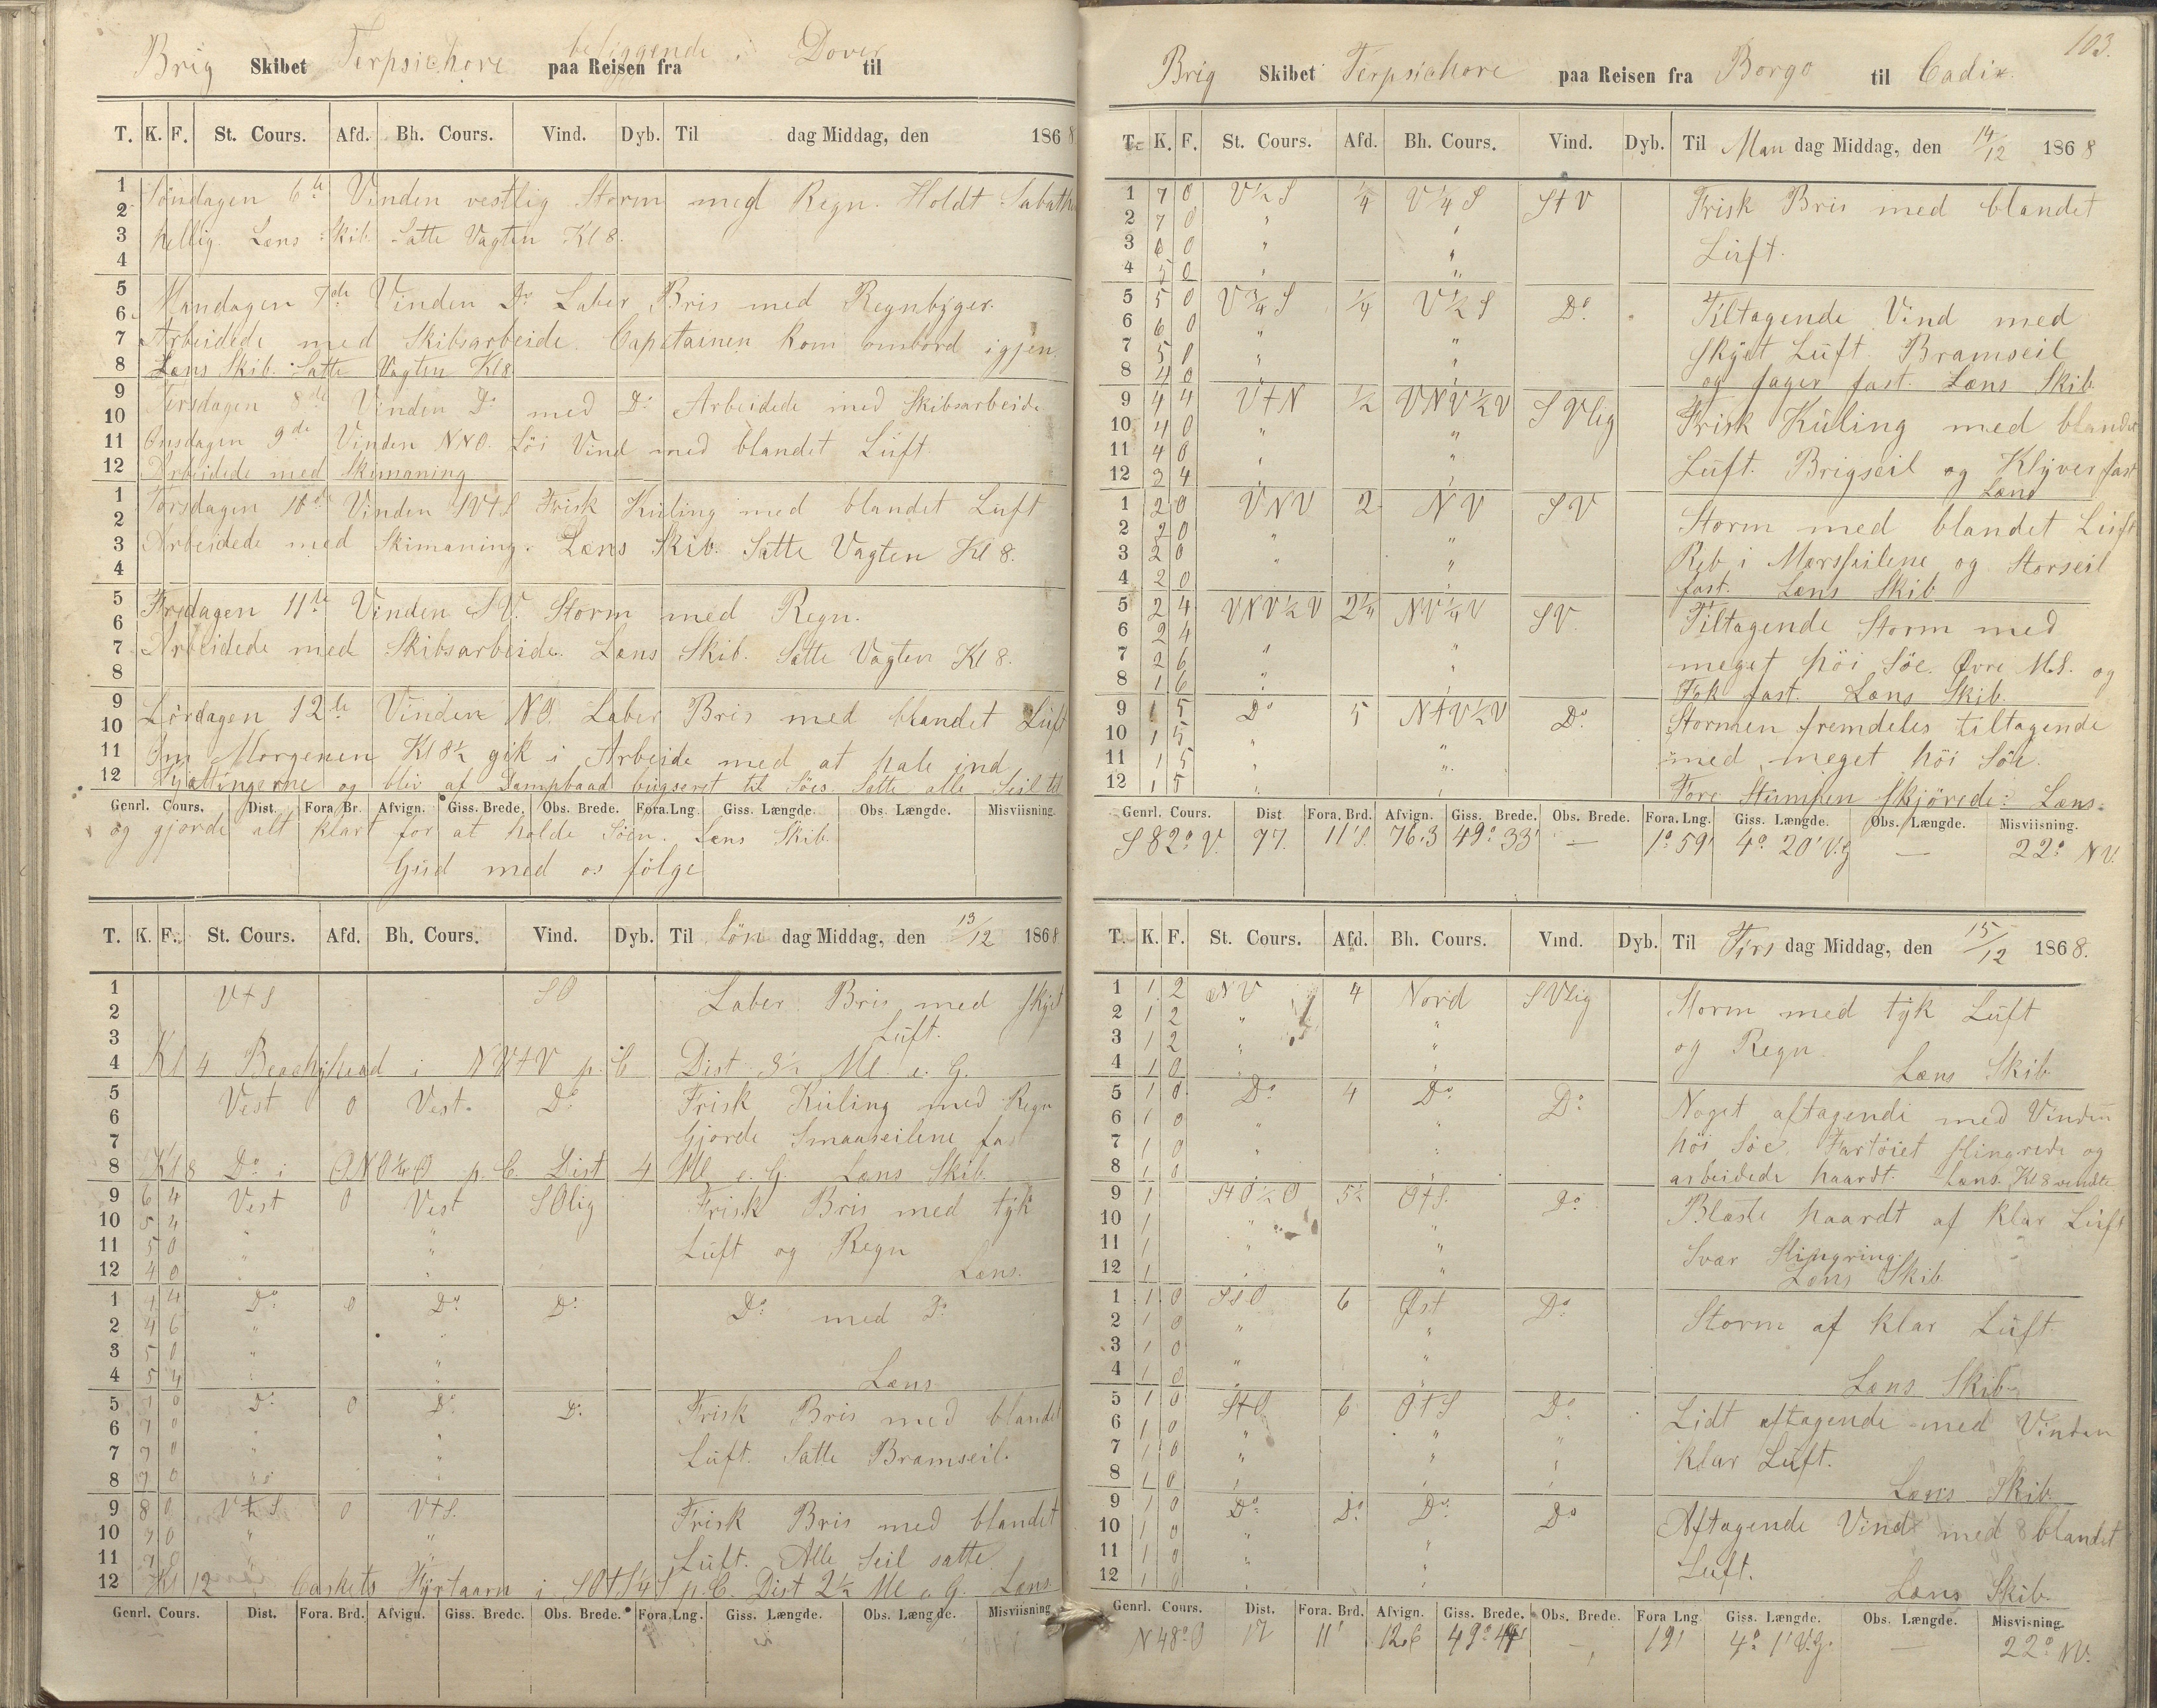 Brig Skibet Terpsichore beliggende i Dover
paa Reisen fra til
T. K. F. St. Cours. Afd. Bh. Cours. Vind. Dyb. Til dag Middag, den 1868
1 Söndagen 6te Vinden vestlig Storm med Regn. Holdt Sabathen
2
3 hellig. Læns Skib. Satte Vagten Kl 8.
4
5 Mandagen 7de Vinden Do Laber Bris med Regnbyger.
6
7 Arbeidede med Skibsarbeide. Capetainen kom ombord igjen.
8 Læns Skib. Satte Vagten Kl 8
9 Tirsdagen 8de Vinden Do med Do Arbeidede med Skibsarbeide
10
11 Onsdagen 9de Vinden NNO. Löi Vind med blandet Luft
12 Arbeidede med Skimaning
1 Torsdagen 10de Vinden SVtS Frisk Kuling med blandet Luft
2
3 Arbeidede med Skimaning. Læns Skib. Satte Vagten Kl 8.
4
5 Fredagen 11te Vinden SV. Storm med Regn.
6
7 Arbeidede med Skibsarbeide. Læns Skib. Satte Vagten Kl 8.
8
9 Lördagen 12te Vinden NO. Laber Bris med blandet Luft
10
11 Om Morgenen Kl 8½ gik i Arbeide med at hale ind
12 Kjættingerne og blev af Dampbaad bugseret til Söes. Satte alle Seil til
Genrl. Cours. Dist. Fora Br. Afvign. Giss. Brede. Obs. Brede. Fora.Lng. Giss. Længde. Obs. Længde. Misviisning.
og gjorde alt klart for at holde Söen. Læns Skib.
Gud med os fölge
T. K. F. St. Cours. Afd. Bh. Cours. Vind. Dyb. Til Sön dag Middag, den 13/12 1868
1 VtS SO Laber Bris med skyet
2
3 Luft.
4 Kl 4 Beachyhead i NVtV p. C. Dist 3½ Ml. e. G.
5 Vest 0 Vest. Do Frisk Kuling med Regn
6
7 Gjorde Smaaseilene fast
8 Kl 8 Do i ONO¼O p. C. Dist 4 Ml. e. G. Læns Skib
9 6 4 Vest 0 Vest SOlig Frisk Bris med tyk
10 5 4 " "
11 5 0 " " Luft og Regn
12 4 0 " " Læns.
1 4 4 Do 0 Do Do Do med Do
2 4 6 "
3 5 0 " "
4 5 4 " " Læns
5 7 0 Do 0 Do Do Frisk Bris med blandet
6 7 0 " "
7 7 0 " " Luft. Satte Bramseil.
8 7 0 "
9 8 0 VtS 0 VtS. Frisk Bris med blandet
10 7 0 " "
11 7 0 " Luft. Alle Seil satte
12 Kl 12 Caskets Fyrtaarn i p. C. Dist 2½ Ml e. G. Læns
Genrl. Cours. Dist. Fora. Brd. Afvign. Giss. Brede. Obs. Brede. Fora.Lng. Giss. Længde. Obs. Længde. Misviisning
103.
Brig Skibet Terpsichore paa Reisen fra Borgo til Cadix.
T. K. F. St. Cours. Afd. Bh. Cours. Vind. Dyb. Til Man dag Middag, den 14/12 1868
1 7 0 V½S ¼ V¼S StV Frisk Bris med blandet
2 7 0 " "
3 6 0 " " Luft.
4 5 0 " "
5 5 0 V¾S ¼ V½S Do. Tiltagende Vind med
6 6 0 " "
7 5 0 " " skyet Luft. Bramseil
8 4 0 " " og Jager fast. Læns Skib
9 4 4 VtN ½ VNV½V SVlig Frisk Kuling med blandet
10 4 0 " "
11 4 0 " " Luft. Brigseil og Klyver fast
12 3 4 " " Læns
1 2 0 VNV 2 NV SV Storm med blandet Luft
2 2 0 " "
3 2 0 " " Reb i Mersseilene og Storseil
4 2 0 " fast. Læns Skib
5 2 4 VNV½V 2¼ NV¼V SV. Tiltagende Storm med
6 2 4 " "
7 2 6 " " meget höi Söe. Övre M.S. og
8 1 6 " " Fok fast. Læns Skib.
9 1 5 Do 5 NtV½V Do. Stormen fremdeles tiltagende
10 1 5 "
11 1 5 " " med meget höi Söe.
12 1 5 " " Fore Stumpen skjörede. Læns.
Genrl. Cours. Dist Fora. Brd. Afvign. Giss. Brede. Obs. Brede. Fora. Lng. Giss. Længde. Obs. Længde. Misviisning.
S 82° V. 77. 11'S. 76.3 49° 33' — 1° 59' 4° 20' V.G — 22° NV.
T. K. F. St. Cours. Afd. Bh. Cours. Vind. Dyb. Til Tirs dag Middag, den 15/12 1868.
1 1 2 NV 4 Nord SVlig Storm med tyk Luft
2 1 2 " "
3 1 2 " " og Regn.
4 1 0 " Læns Skib
5 1 0 Do 4 Do Do. Noget aftagende med Vinden
6 1 0 " "
7 1 0 " " höi Söe. Fartöiet slingrede og
8 1 0 " arbeidede haardt. Læns. Kl 8 vendte
9 1 StO½O 5½ OtS. Do. Blæste haardt af klar Luft
10 1 " "
11 1 " " Svær Slingring.
12 1 " " Læns Skib
1 1 0 SSO 6 Öst Do Storm af klar Luft.
2 1 0 " "
3 1 0 "
4 1 0 " " Læns Skib
5 1 0 StO 6 OtS Do Lidt aftagende med Vinden
6 1 0 " " "
7 1 0 " " " klar Luft.
8 1 0 " " Læns Skib
9 1 0 Do Do Do. Do Aftagende Vind med blandet
10 1 0 "
11 1 0 " " Luft.
12 1 0 " " Læns Skib.
Genrl. Cours. Dist. Fora. Brd. Afvign. Giss. Brede. Obs. Brede. Fora Lng Giss. Længde. Obs. Længde. Misvisning.
N 48° O 17 11' 12.6 49° 44' — 19' 4° 1' V.G. — 22° NV.